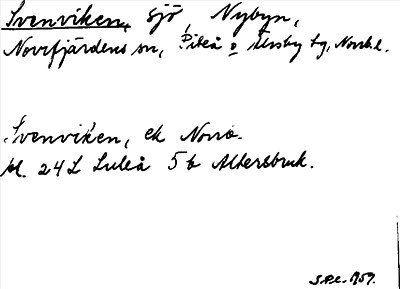 Svenviken, sjö, Nybyn,
Norrfjärdens sn, Piteå o Älvsby tg, Norrb.l.
Svenviken, ek Norra
bl. 24 L Luleå 5 b Altersbruk.
1959.